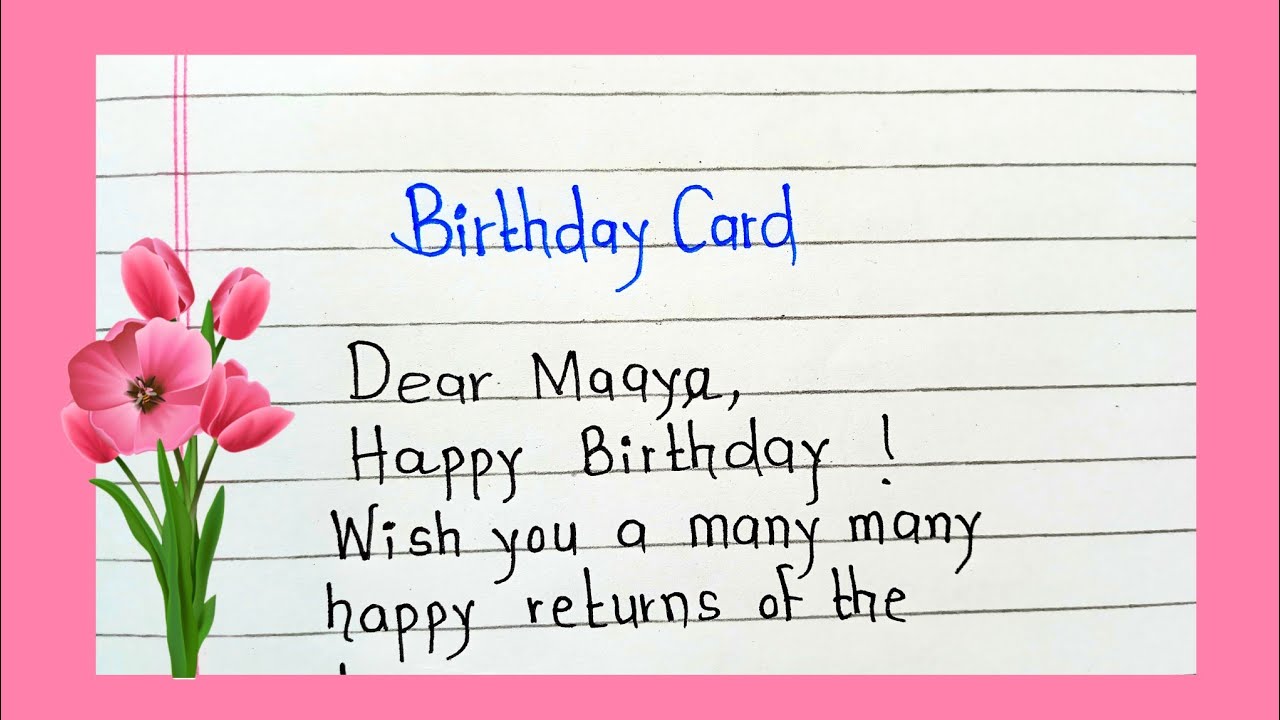 Birthday Card
Dear Maaya,
Happy Birthday !
Wish you a many many
happy returns of the